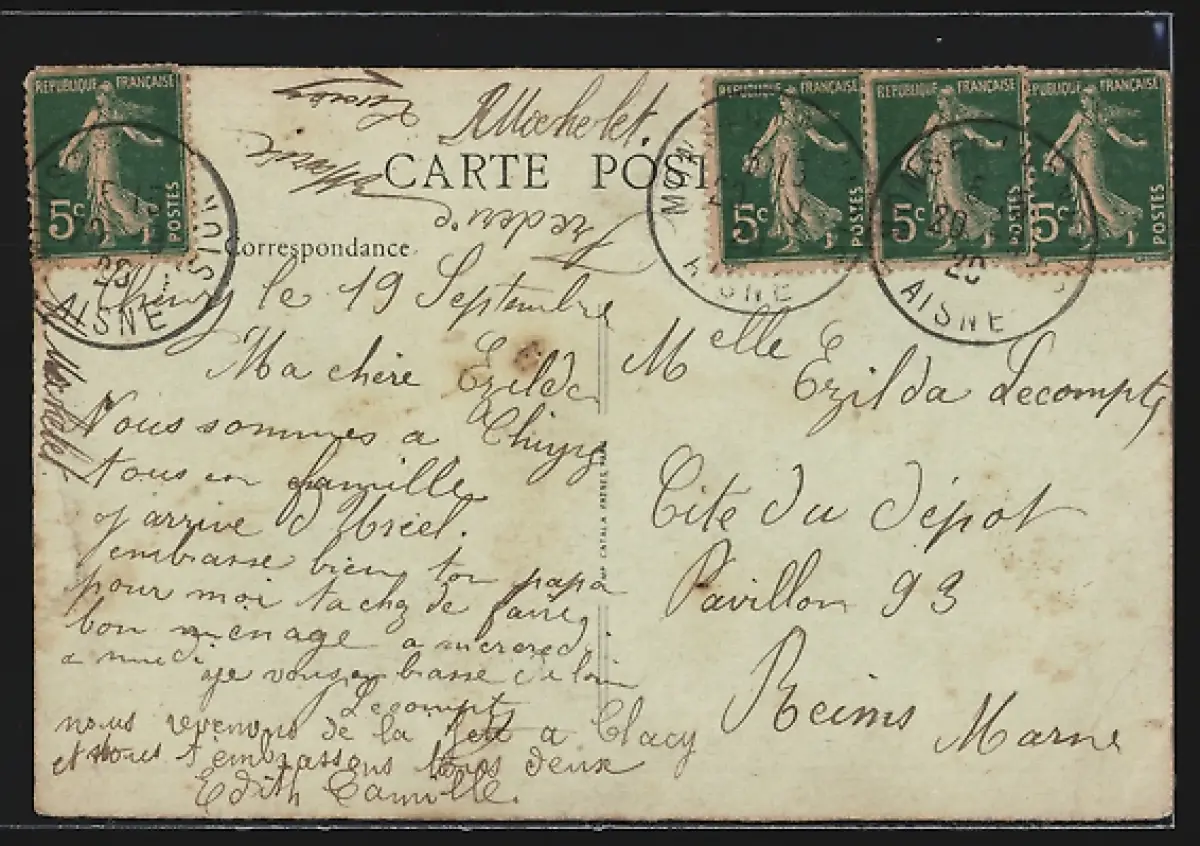 REPUBLIQUE FRANÇAISE
5c POSTES
REPUBLIQUE FRANÇAISE
5c POSTES
REPUBLIQUE FRANÇAISE
5c POSTES
REPUBLIQUE FRANÇAISE
5c POSTES
AISNE
AISNE
20
20
AISNE
RMachelet.
CARTE POST
Correspondance
Chivy le 19 Septembre
Ma chère Ezilda
Nous sommes a Chivy
tous en famille
j arrive d'Urcel.
j embrasse bien ton papa
pour moi tachez de faire
bon menage a mercredi
a midi je vous embrasse de loin
Lecompte
nous revenons de la fete a Clacy
et nous t'embrassons tous deux
Edith Camille.
Machelet
IMP. CATALA FRERES, PARIS
Melle Ezilda Lecompte
Cité du dépot
Pavillon 93
Reims Marne